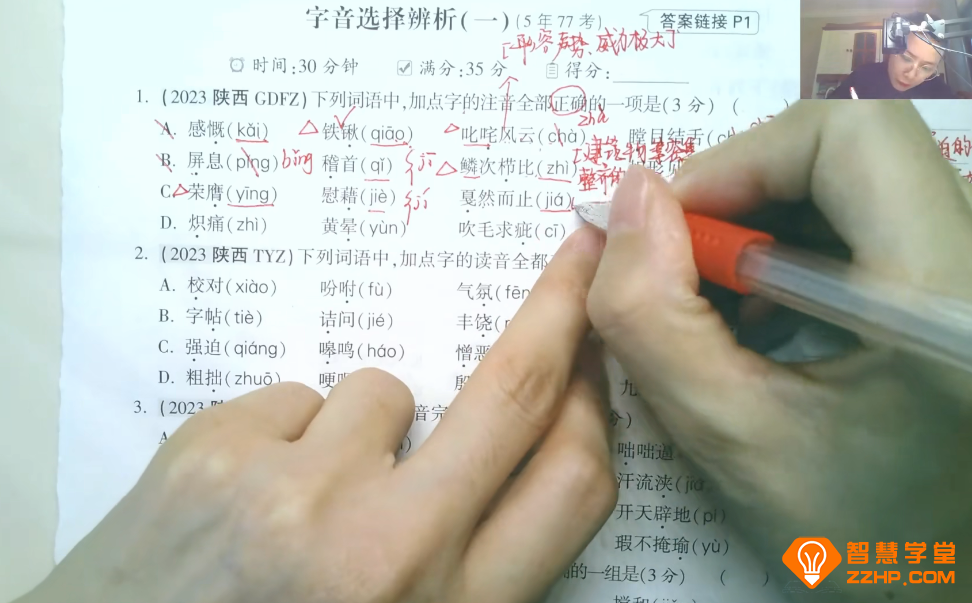 字音选择辨析(一)(5年77考) 答案链接 P1
[形容声势、威力极大]
时间:30分钟 满分:35分 得分:
1. (2023陕西GDFZ)下列词语中,加点字的注音全部正确的一项是(3分) ( )
zhà
A. 感慨(kǎi) 铁锹(qiāo) 叱咤风云(chà) 瞠目结舌
B. 屏息(pǐng) bǐng 稽首(qǐ) 鳞次栉比(zhì)
C. 荣膺(yīng) 慰藉(jiè) 戛然而止(jiá)
D. 炽痛(zhì) 黄晕(yùn) 吹毛求疵(cī)
2. (2023陕西TYZ)下列词语中,加点字的读音全都
A. 校对(xiào) 吩咐(fù) 气氛(fēn
B. 字帖(tiè) 诘问(jié) 丰饶(
C. 强迫(qiáng) 嗥鸣(háo) 憎恶
D. 粗拙(zhuō) 哽 殷 九
3. (2023陕 音完 分)
咄咄逼
汗流浃(jiā
开天辟地(pì)
瑕不掩瑜(yù)
的一组是(3分) ( )
智慧学堂
ZZHP.COM